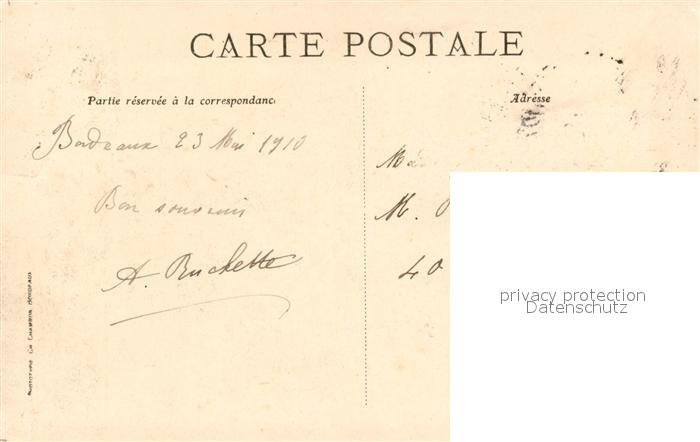 CARTE POSTALE
Partie réservée à la correspondance
Adresse
Bordeaux 23 Mai 1910
Bon souvenir
A. Ruchette
M.
40
privacy protection
Datenschutz
PHOTOTYPIE CH CHAMBON BORDEAUX